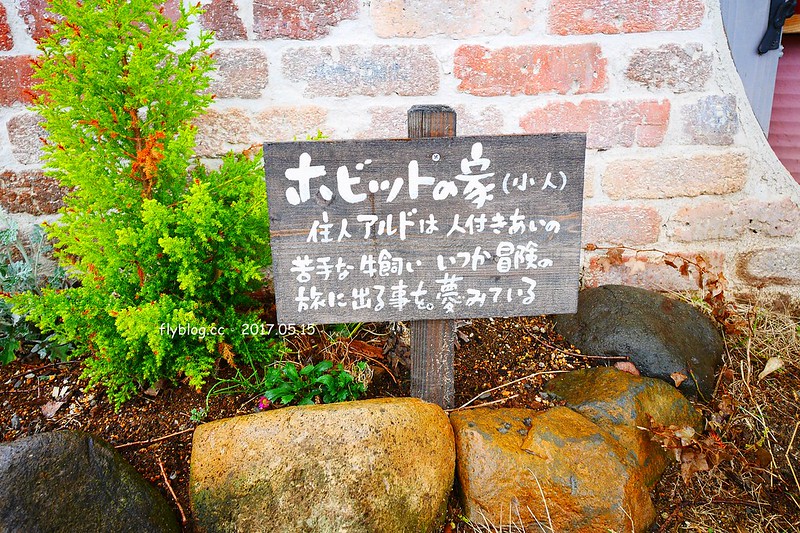 ホビットの家(小人)
住人アルドは人付きあいの
苦手な牛飼い いつか冒険の
旅に出る事を。夢みている
flyblog.cc · 2017.05.15